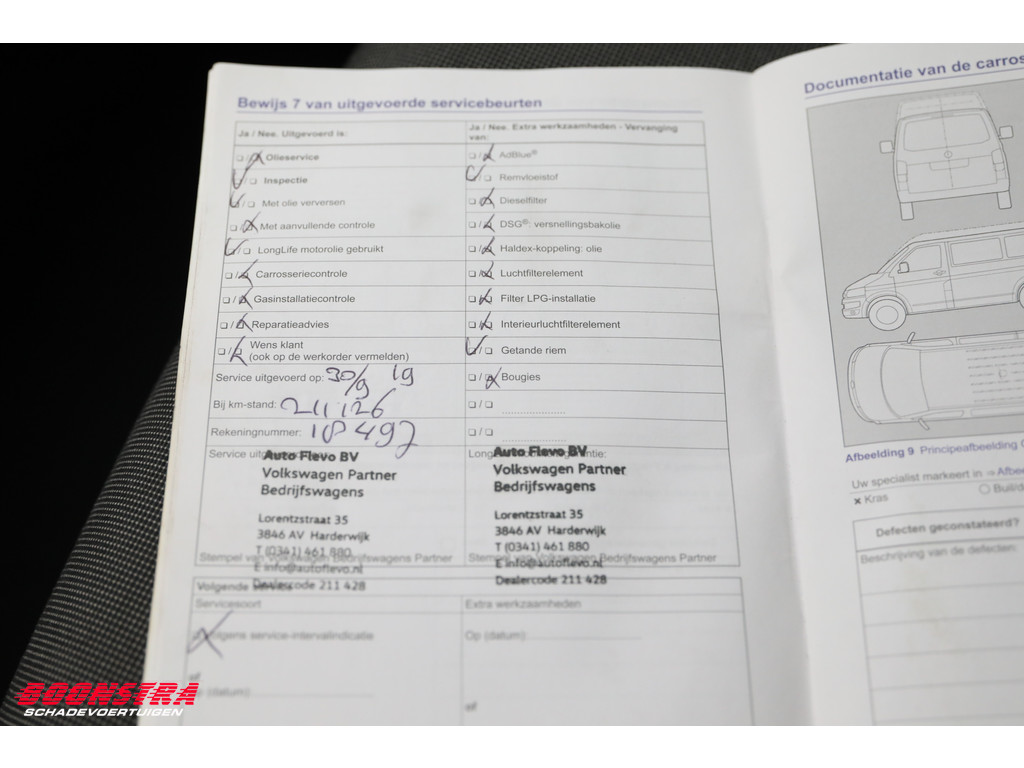 Bewijs 7 van uitgevoerde servicebeurten
Ja / Nee. Uitgevoerd is:
Olieservice
Inspectie
Met olie verversen
Met aanvullende controle
LongLife motorolie gebruikt
Carrosseriecontrole
Gasinstallatiecontrole
Reparatieadvies
Wens klant
(ook op de werkorder vermelden)
Service uitgevoerd op: 30/9 19
Bij km-stand: 211126
Rekeningnummer: 18497
Service
Auto Flevo BV
Volkswagen Partner
Bedrijfswagens
Lorentzstraat 35
3846 AV Harderwijk
T (0341) 461 880
Stempel van Volkswagen Bedrijfswagens Partner
E info@autoflevo.nl
Dealercode 211 428
Ja / Nee. Extra werkzaamheden - Vervanging
van:
AdBlue®
Remvloeistof
Dieselfilter
DSG®: versnellingsbakolie
Haldex-koppeling: olie
Luchtfilterelement
Filter LPG-installatie
Interieurluchtfilterelement
Getande riem
Bougies
Auto Flevo BV
Volkswagen Partner
Bedrijfswagens
Lorentzstraat 35
3846 AV Harderwijk
T (0341) 461 880
Stempel van Volkswagen Bedrijfswagens Partner
E info@autoflevo.nl
Dealercode 211 428
Volgende service
Servicesoort
Volgens service-intervalindicatie
of
Op (datum)
Extra werkzaamheden
Op (datum):
of
Documentatie van de carros
Afbeelding 9 Principeafbeelding
Uw specialist markeert in ⇒ Afbee
× Kras
Buil/d
Defecten geconstateerd?
Beschrijving van de defecten:
BOONSTRA
SCHADEVOERTUIGEN